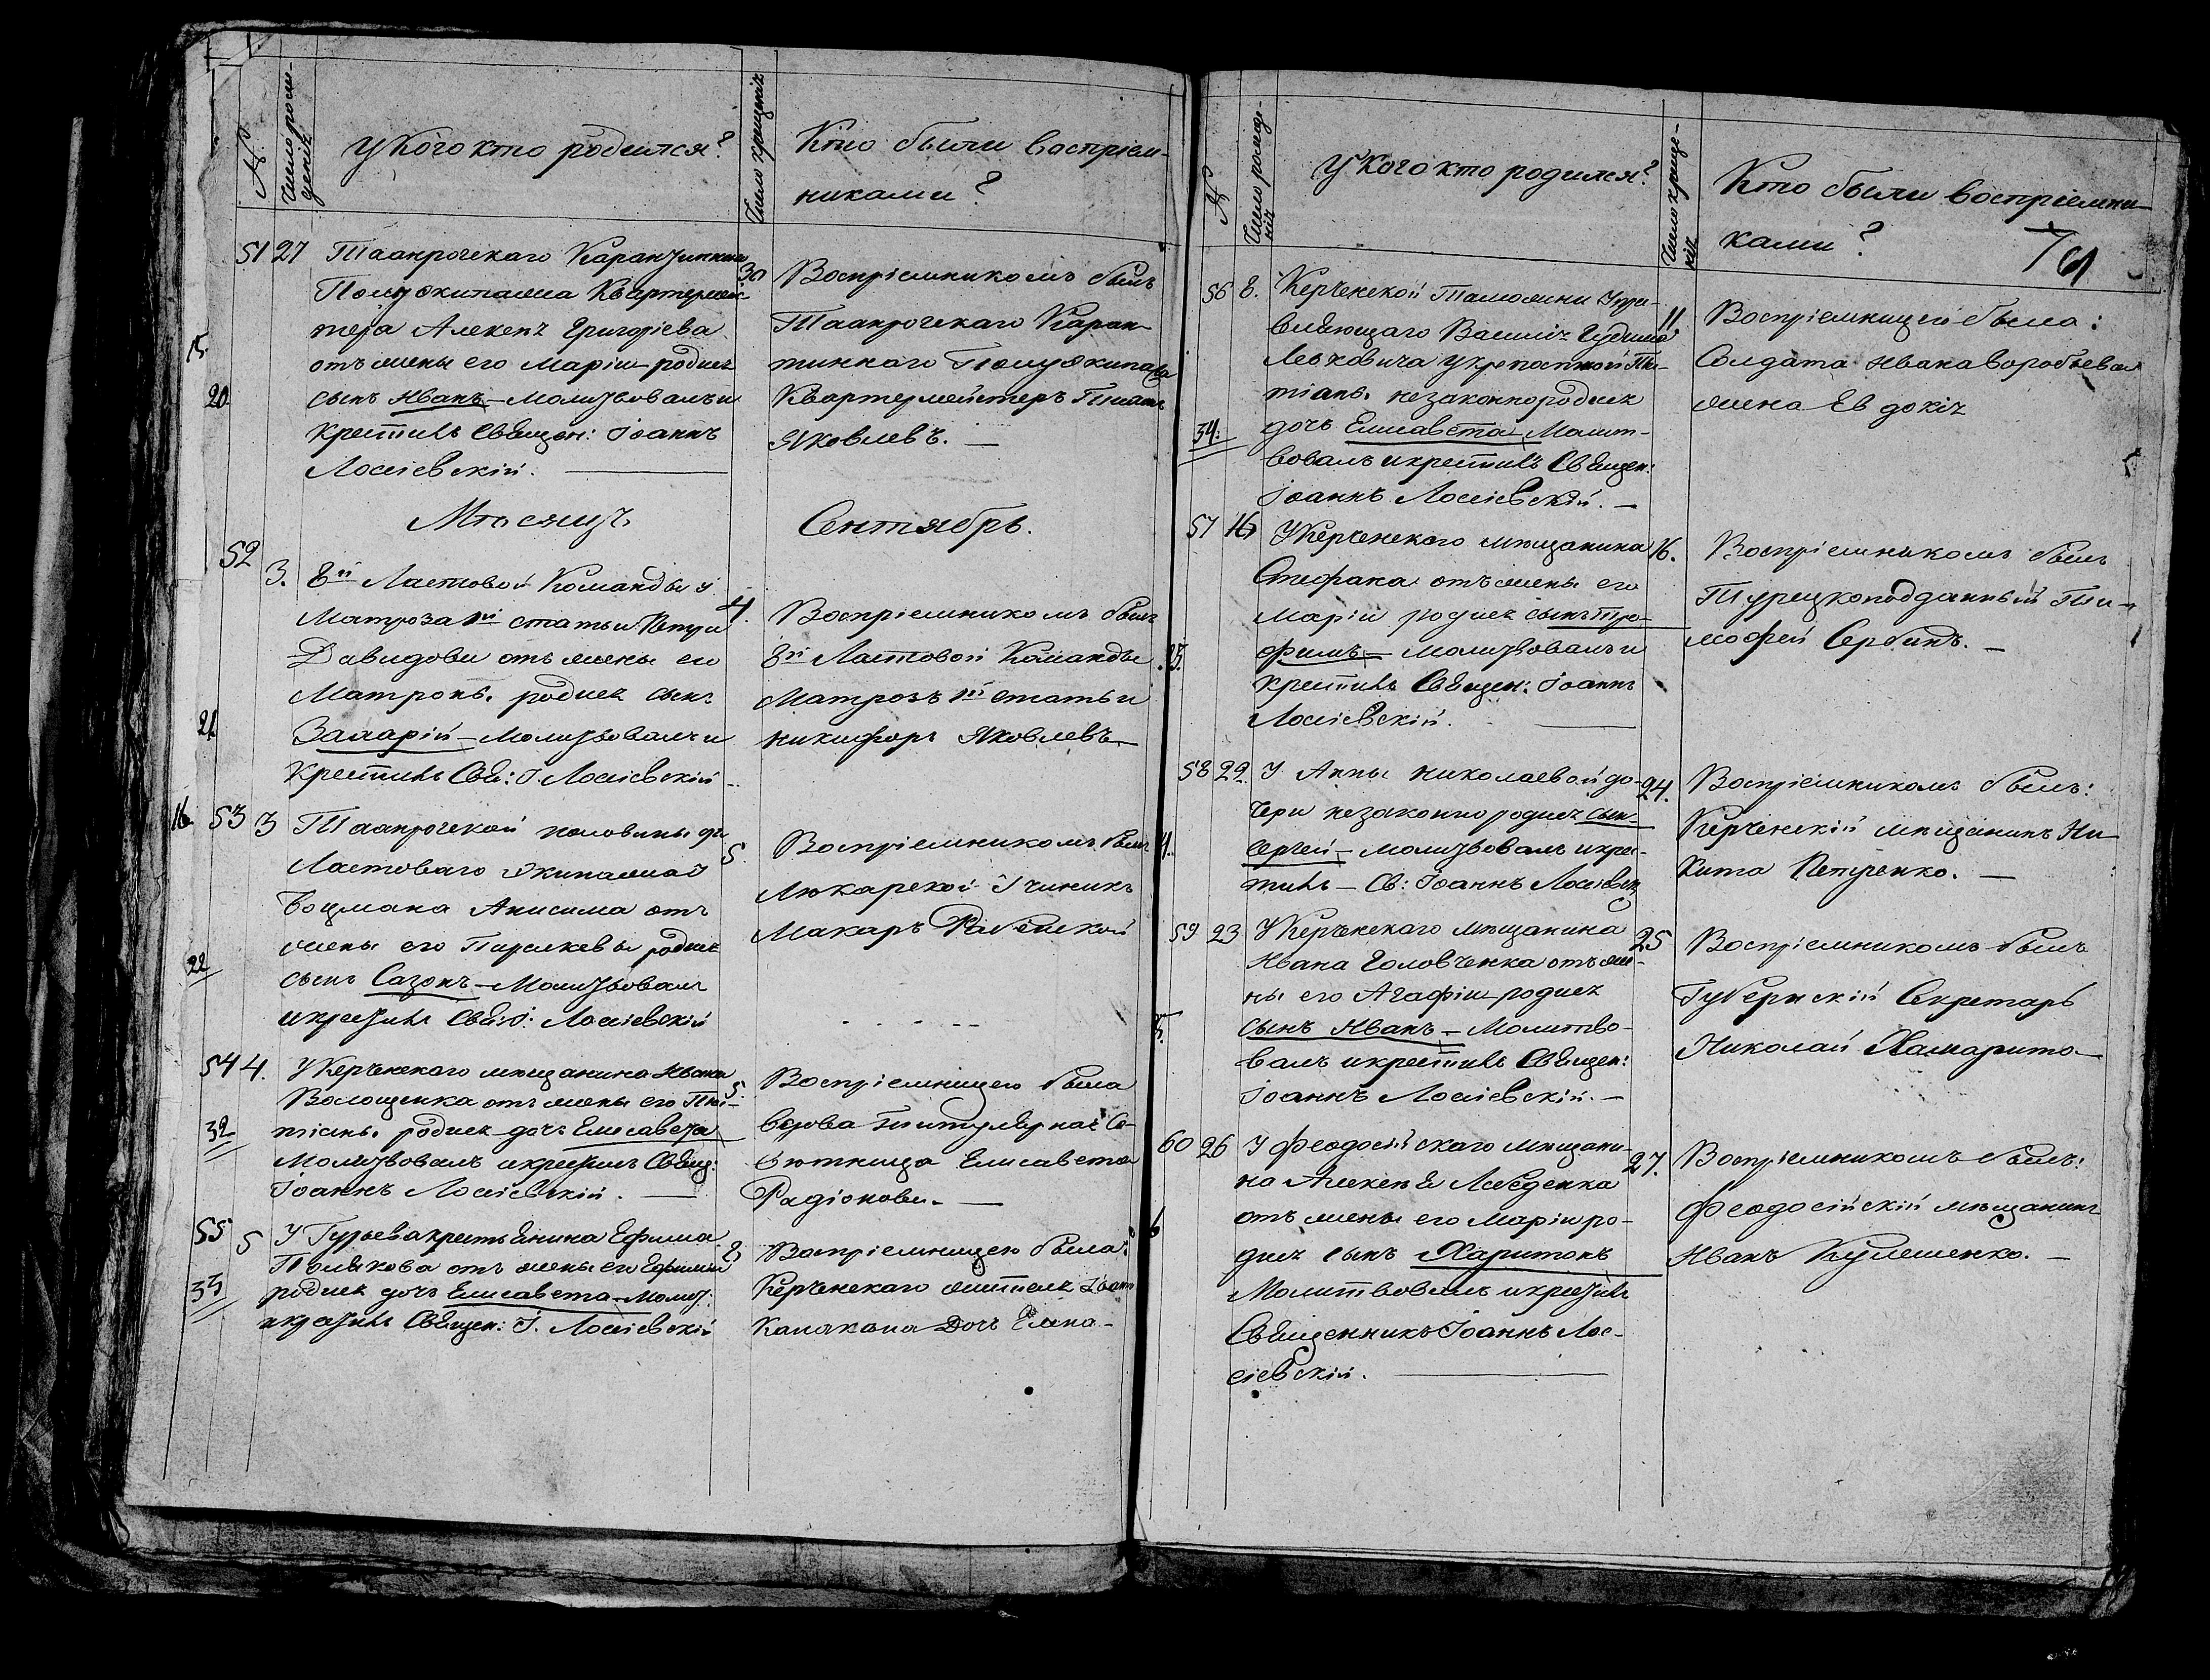 №
Число рож-
денія
У кого кто родился?
Число крещенія
Кто были воспріем-
никами?
51 27
Таанрогскаго Карантинна
Полуэкипажа Квартермей-
тера Алексея Григорiева
отъ жены его Маріи родися
сынъ Иванъ – Молитвовалъ и
крестилъ Священ: Іоаннъ
Лосіевскій.
15.
20
30
Воспріемникомъ былъ
Таанрогскаго Каран-
тиннаго Полуэкипажа
Квартермейстеръ
Яковлевъ. —
Мѣсяцъ Сентябрь.
52 3.
8й Ластовой Команды у
Матроза 1й статьи Петра
Давидова отъ жены его
Матроны родися сынъ
Захарій – Молитвовалъ и
Крестилъ Свя: І. Лосіевскій
21
4.
Воспріемникомъ былъ
8й Ластовой Команды
Матрозъ 1й статьи
Никифоръ Яковлевъ
16 53 3
Таанрогской половины
Ластоваго Экипажа
Боцмана Анисима отъ
жены его Параскевы родися
сынъ Сазонъ – Молитвовалъ
и крестилъ Свя: І: Лосіевскій
22
5.
Воспріемникомъ былъ
Макаръ
54 4.
У Керченскаго мѣщанина Ивана
Волощенка отъ жены его Та-
тіяны родися дочь Елисавета
Молитвовалъ и крестилъ Свящ:
Іоаннъ Лосіевскій. —
32
5.
Воспріемницею была
вдова Титулярная Со-
вѣтница Елисавета
Радіонова. —
55 5
У Гурьева крестьянина Ефима
Полякова отъ жены его Ефиміи
родися дочь Елисавета – Молит:
и крестилъ Священ: І. Лосіевскій
33
8
Воспріемницею была:
Керченскаго жителя
дочь Елена –
№
Число рожде-
нія
У кого кто родился?
Число креще-
нія
Кто были воспріемни-
ками?
56 8.
Керченской Таможни Упра-
вляющаго Василія Гудима
Левковича у крепостной Та-
тіаны незаконнородися
дочь Елисавета Молит-
вовалъ и крестилъ Священ:
Іоаннъ Лосіевскій. —
34.
11
Воспріемницей была:
Солдата Ивана Воробьева
жена Евдокія
57 16
У Керченскаго мѣщанина
Стефана отъ жены его
Маріи родися сынъ Тро-
фимъ – Молитвовалъ и
Крестилъ Священ: Іоаннъ
Лосіевскій.
16.
Воспріемникомъ былъ
Турецкоподданный Ти-
мофей Сербинъ. —
58 22
У Анны Николаевой до-
чери незаконно родися сынъ
Сергей – молитвовалъ и крес-
тилъ – Св: Іоаннъ Лосіевск
24.
Воспріемникомъ былъ:
Керченскій мѣщанинъ Ни-
кита Петренко. —
59 23
У Керченскаго мѣщанина
Ивана Головченка отъ же-
ны его Агафіи родися
сынъ Иванъ – Молитво-
валъ и крестилъ Священ:
Іоаннъ Лосіевскій. —
25
Воспріемникомъ былъ
Губернскій Секретарь
Николай
60 26
У Феодосійскаго мѣщани-
на Алексея Лебеденка
отъ жены его Маріи ро-
дися сынъ Харитонъ
Молитвовалъ и крестилъ
Священникъ Іоаннъ Лос-
сіевскій.
27.
Воспріемникомъ былъ:
Феодосійскій мѣщанинъ
Иванъ Кулешенко. —